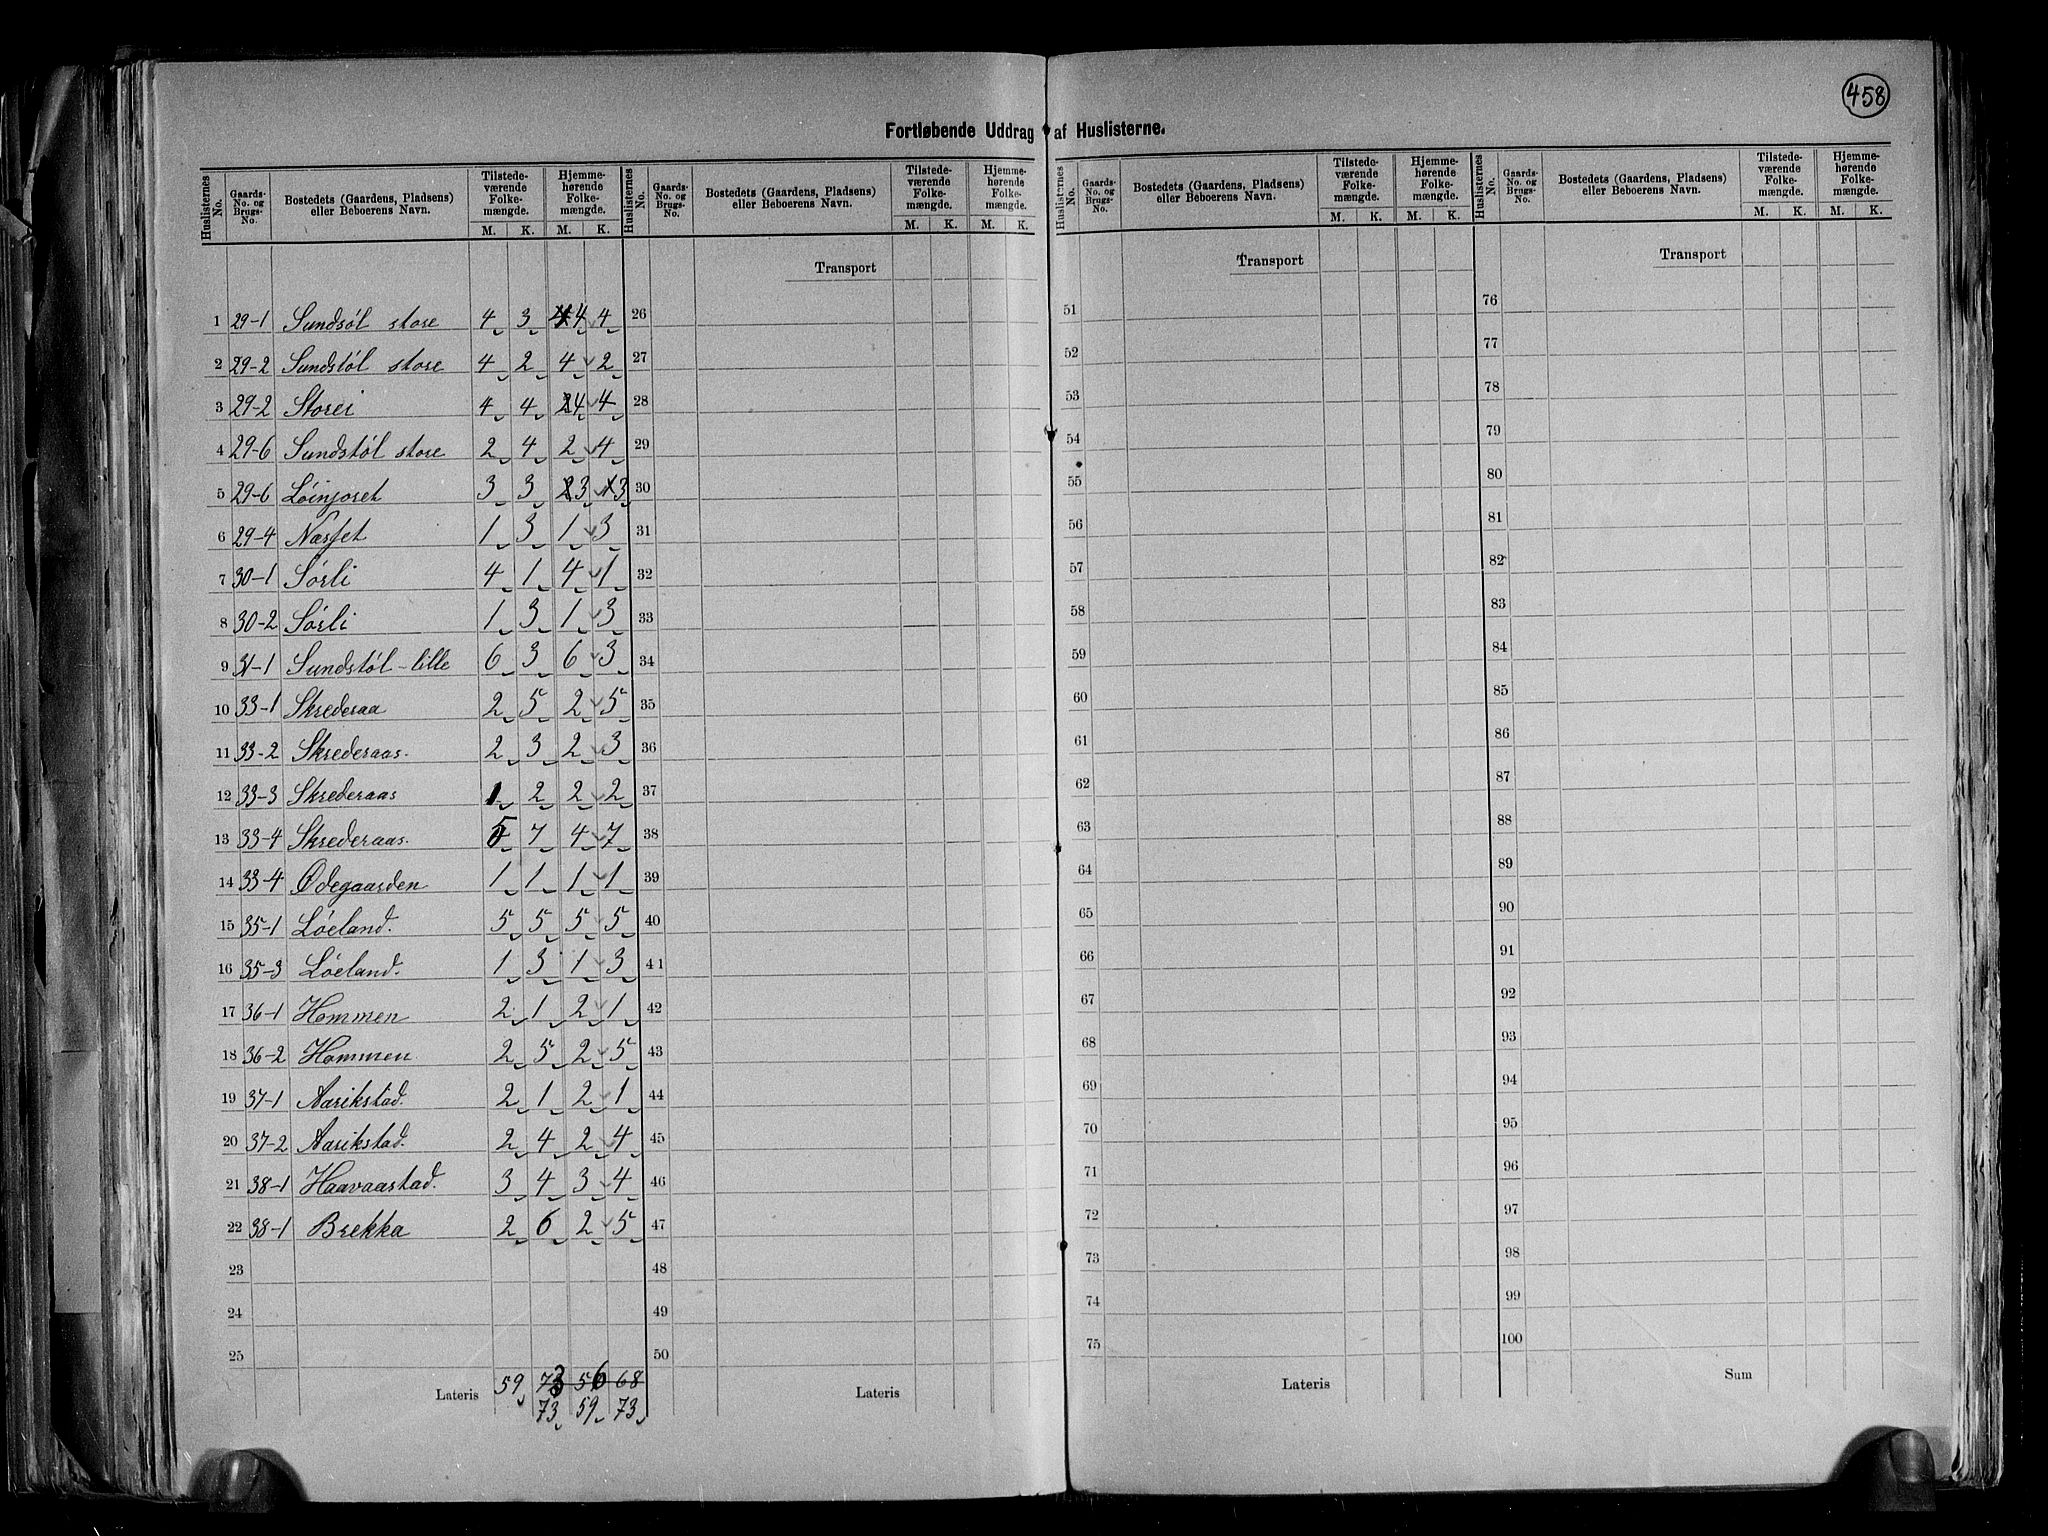 458
Fortløbende Uddrag af Huslisterne.
Huslisternes No. | Gaards-No. og Brugs-No. | Bostedets (Gaardens, Pladsen) eller Beboerens Navn. | Tilstedeværende Folkemængde. M. K. | Hjemmehørende Folkemængde. M. K.
Huslisternes No. | Gaards-No. og Brugs-No. | Bostedets (Gaardens, Pladsen) eller Beboerens Navn. | Tilstedeværende Folkemængde. M. K. | Hjemmehørende Folkemængde. M. K.
Huslisternes No. | Gaards-No. og Brugs-No. | Bostedets (Gaardens, Pladsen) eller Beboerens Navn. | Tilstedeværende Folkemængde. M. K. | Hjemmehørende Folkemængde. M. K.
Huslisternes No. | Gaards-No. og Brugs-No. | Bostedets (Gaardens, Pladsen) eller Beboerens Navn. | Tilstedeværende Folkemængde. M. K. | Hjemmehørende Folkemængde. M. K.
Transport Transport Transport
1 29-1 Sundsöl store 4 3 4 4 26 51 76
2 29-2 Sundstöl store 4 2 4 2 27 52 77
3 29-2 Storei 4 4 4 4 28 53 78
4 29-6 Sundstöl store 2 4 2 4 29 54 79
5 29-6 Löinjoset 3 3 3 3 30 55 80
6 29-4 Næsset 1 3 1 3 31 56 81
7 30-1 Sörli 4 1 4 1 32 57 82
8 30-2 Sörli 1 3 1 3 33 58 83
9 31-1 Sundstöl-lille 6 3 6 3 34 59 84
10 33-1 Skrederaa 2 5 2 5 35 60 85
11 33-2 Skrederaas. 2 3 2 3 36 61 86
12 33-3 Skrederaas 1 2 2 2 37 62 87
13 33-4 Skrederaas. 5 7 4 7 38 63 88
14 33-4 Ødegaarden 1 1 1 1 39 64 89
15 35-1 Löeland. 5 5 5 5 40 65 90
16 35-3 Löeland. 1 3 1 3 41 66 91
17 36-1 Hommen 2 1 2 1 42 67 92
18 36-2 Hommen 2 5 2 5 43 68 93
19 37-1 Aarikstad. 2 1 2 1 44 69 94
20 37-2 Aarikstad. 2 4 2 4 45 70 95
21 38-1 Haavaastad. 3 4 3 4 46 71 96
22 38-1 Brekka 2 6 2 5 47 72 97
23 48 73 98
24 49 74 99
25 50 75 100
Lateris 59 73 56 68 Lateris Lateris Sum
73 59 73